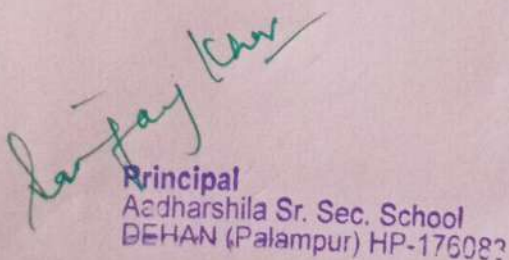 Sanjay
Principal
Aadharshila Sr. Sec. School
DEHAN (Palampur) HP-176083